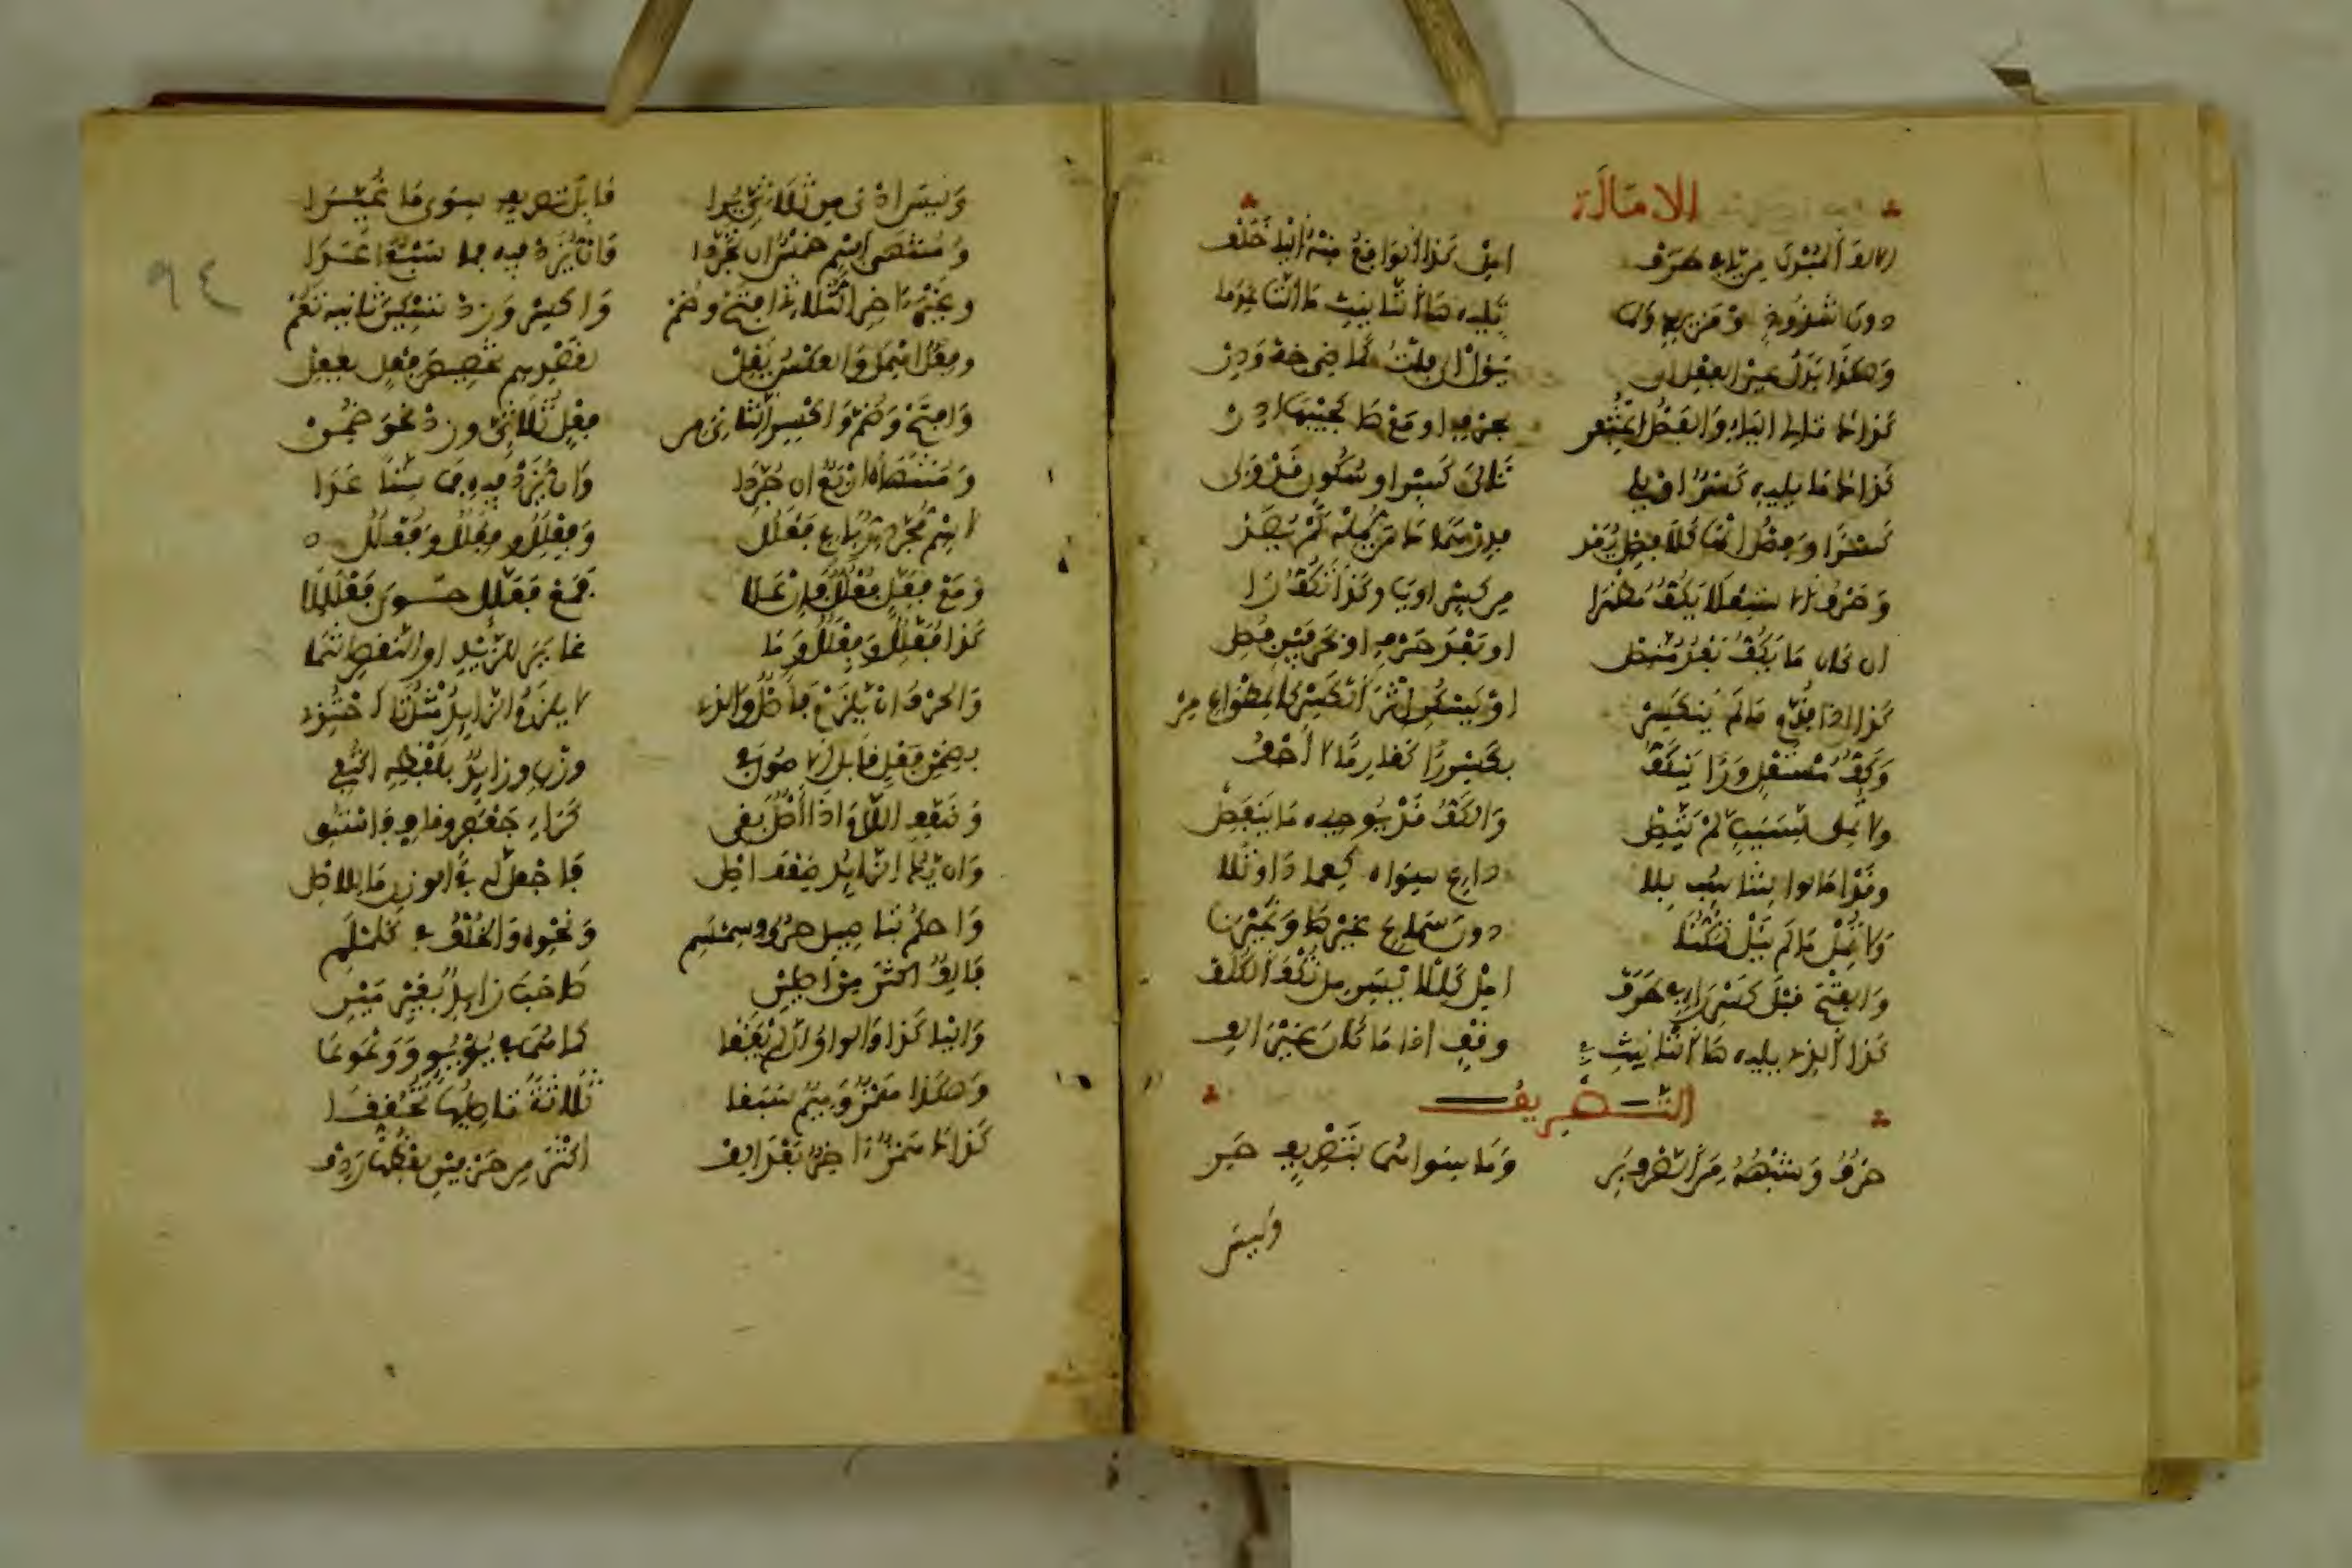 الامالة
الالف المبدل من ياء طرف امل كذا الواقع منه اليا خلف
دون شذوذ او مزيد ولما تليه ها التانيث ما الها عدما
وهكذا بدل عين الفعل ان يؤل الى فلت كماضي خف ودن
كذاك تالي الياء والفصل اغتفر بحرف او مع ها كجيبها ادر
كذاك ما يليه كسر او يلي تالي كسر او سكون قد ولي
كسرا وفصل الها كلا فصل يعد فدرهماك من يمله لم يصد
وحرف الاستعلا يكف مظهرا من كسر او يا وكذا تكف را
ان كان ما يكف بعد متصل او بعد حرف او بحرفين فصل
كذا اذا قدم ما لم ينكسر او يسكن اثر الكسر كالمطواع مر
وكف مستعل ورا ينكف بكسر را كغارما لا اجفو
ولا تمل لسبب لم يتصل والكف قد يوجبه ما ينفصل
وقد امالوا لتناسب بلا داع سواه كعمادا وتلا
ولا تمل ما لم ينل تمكنا دون سماع غيرها وغيرنا
والفتح قبل كسر راء في طرف امل كللايسر مل تكف الكلف
كذا الذي يليه ها التانيث في وقف اذا ما كان غير الف
التصريف
حرف وشبهه من الصرف بري وما سواهما بتصريف حري
وليس
وليس ادنى من ثلاثي يرى قابل تصريف سوى ما غيرا
ومنتهى اسم خمس ان تجردا وان يزد فيه فما سبعا عدا
وغير اخر الثلاثي افتح وضم واكسر وزد تسكين ثانيه تعم
وفعل اهمل والعكس يقل لقصدهم تخصيص فعل بفعل
وافتح وضم واكسر الثاني من فعل ثلاثي وزد نحو ضمن
ومنتهاه اربع ان جردا وان يزد فيه فما ستا عدا
لاسم مجرد رباع فعلل وفعلل وفعلل وفعلل
ومع فعل فعلل وان علا فمع فعلل حوى فعلللا
كذا فعلل وفعلل وما غاير للزيد او النقص انتمى
والحرف ان يلزم فاصل والذي لا يلزم الزايد مثل تا احتذي
بضمن فعل قابل الاصول في وزن وزايد بلفظه اكتفي
وضعف اللام اذا اصل بقي كراء جعفر وقاف فستق
وان يك الزايد ضعف اصل فاجعل له في الوزن ما للاصل
واحكم بتاصيل حروف سمسم ونحوه والخلف في كلملم
فالف اكثر من اصلين صاحب زايد بغير مين
واليا كذا والواو ان لم يقعا كما هما في يؤيؤ ووعوعا
وهكذا همز وميم سبقا ثلاثة تاصيلها تحققا
كذاك همز اخر بعد الف اكثر من حرفين لفظها ردف
٩٤